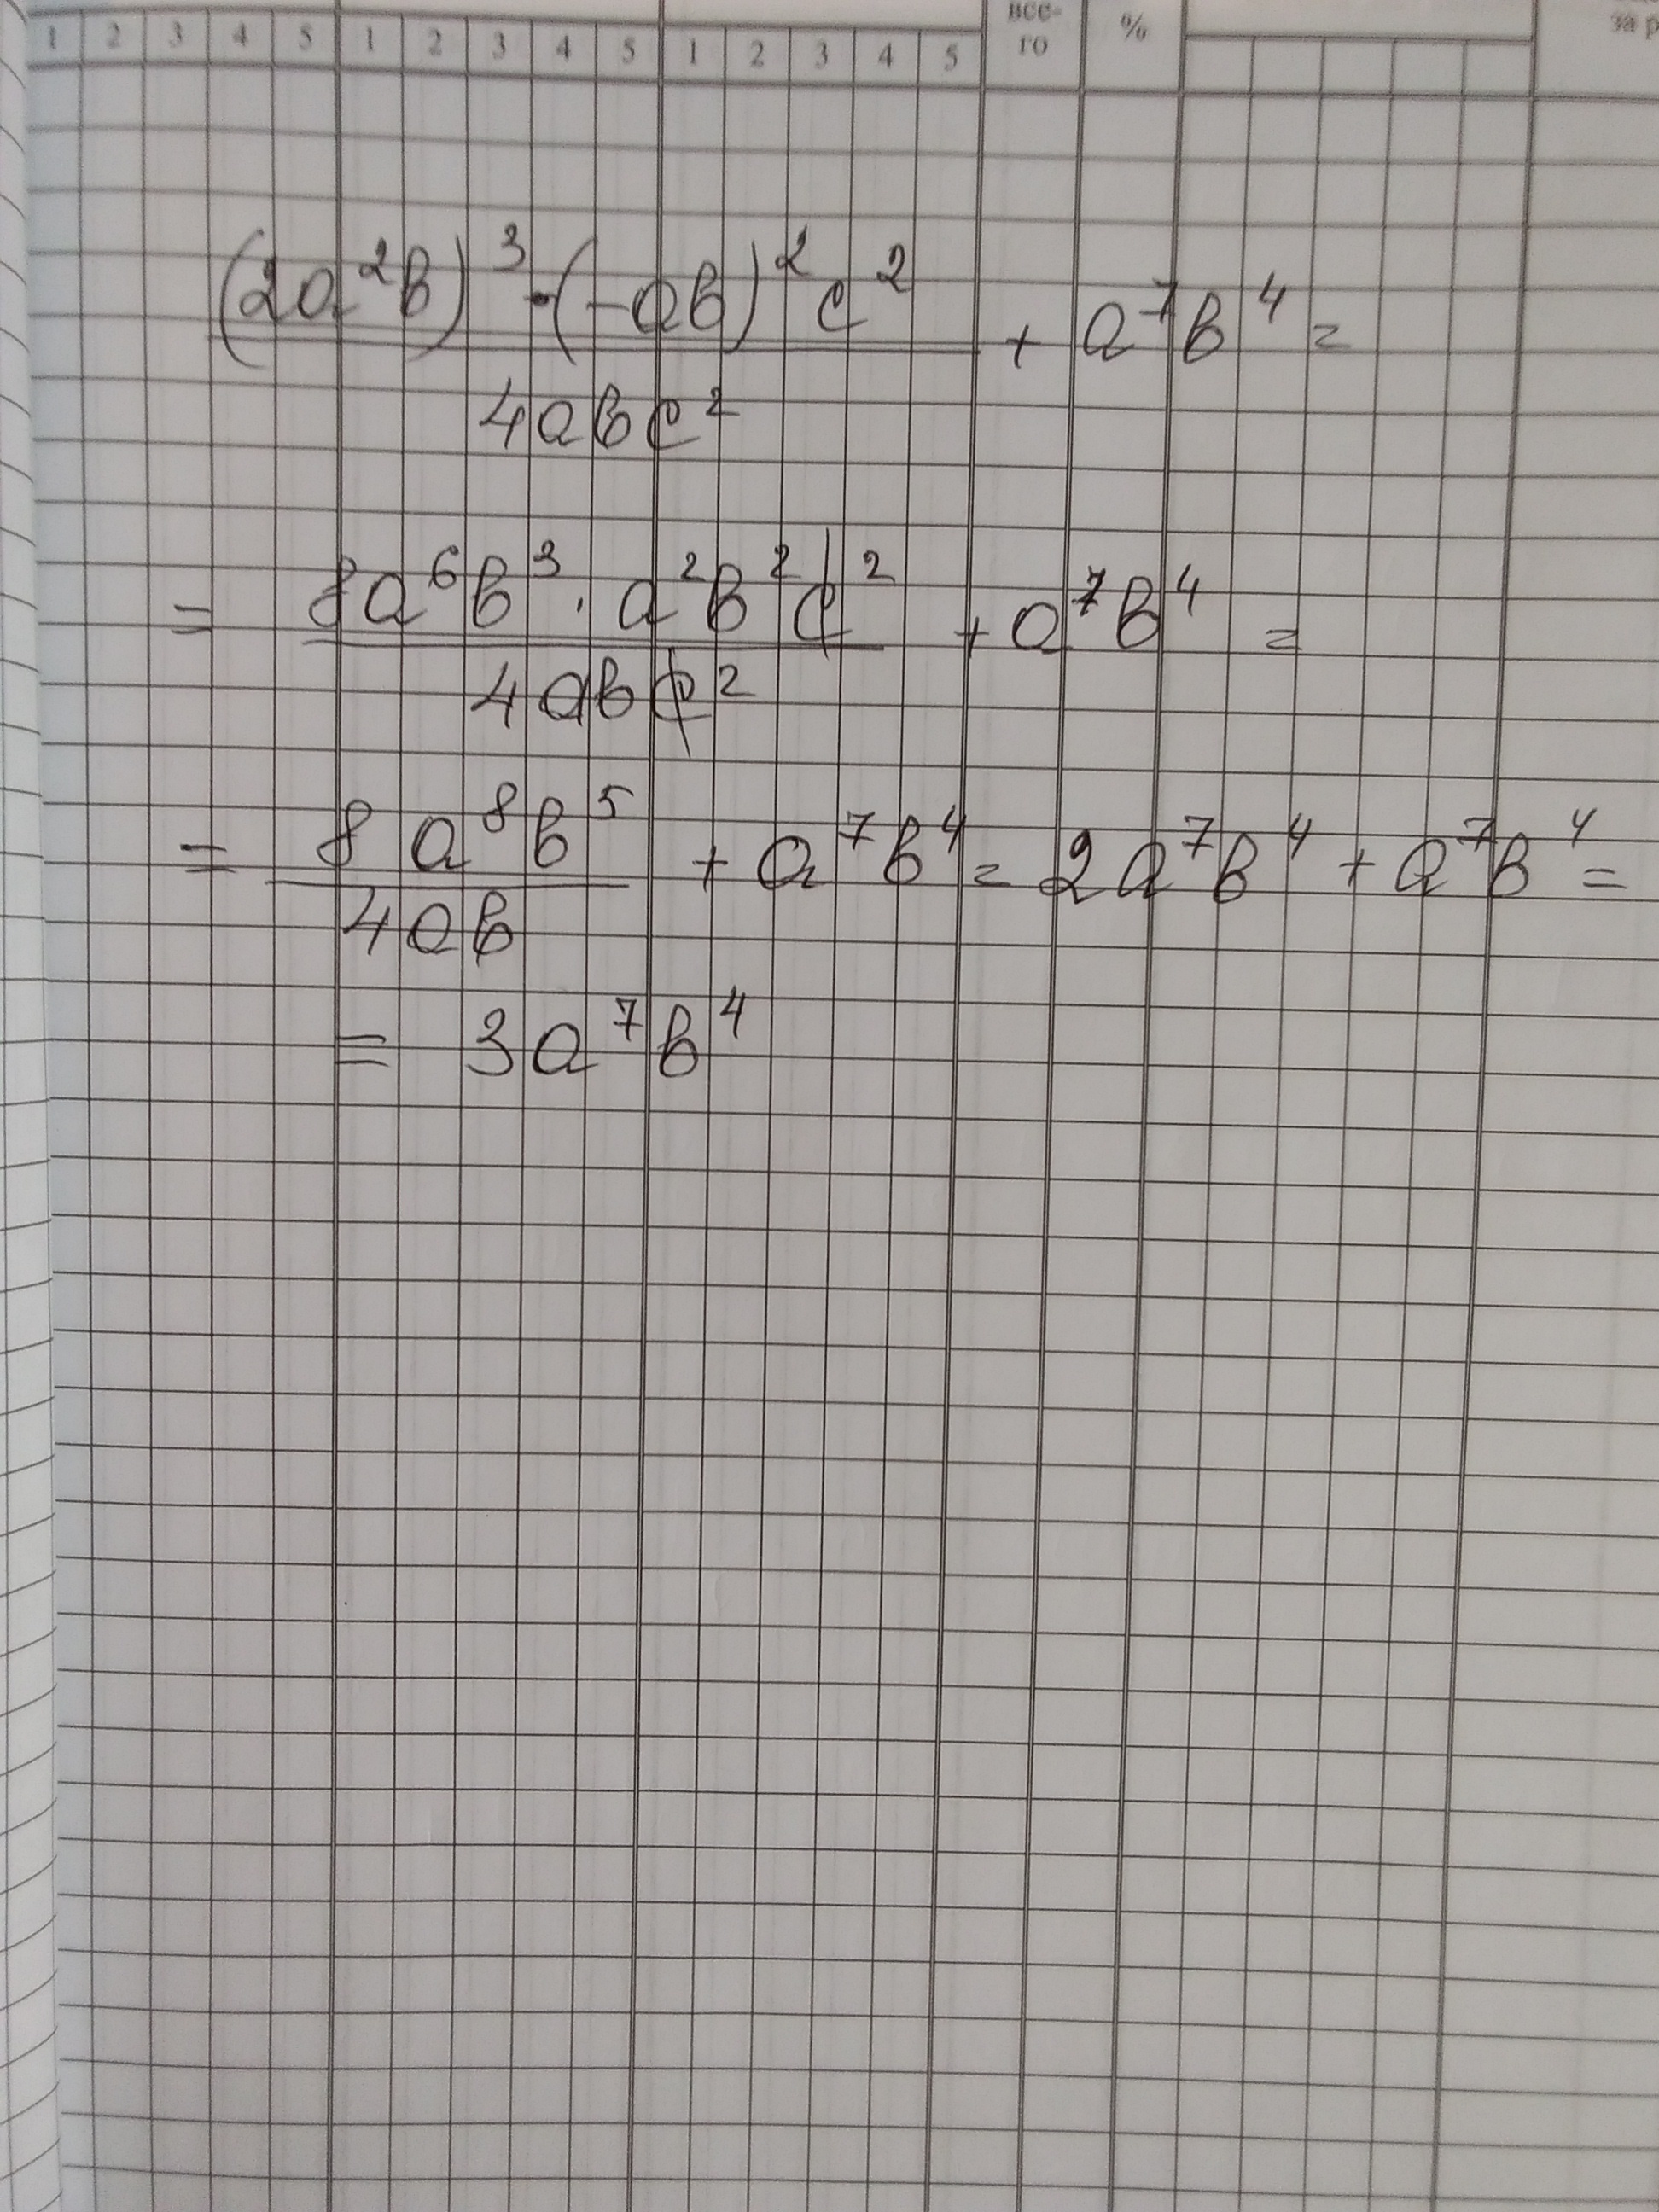 1 2 3 4 5 1 2 3 4 5 1 2 3 4 5 все- го % за р
(2a²b)³·(-ab)²c² / 4abc² + a⁷b⁴ =
= 8a⁶b³·a²b²c² / 4abc² + a⁷b⁴ =
= 8a⁸b⁵ / 4ab + a⁷b⁴ = 2a⁷b⁴ + a⁷b⁴ =
= 3a⁷b⁴